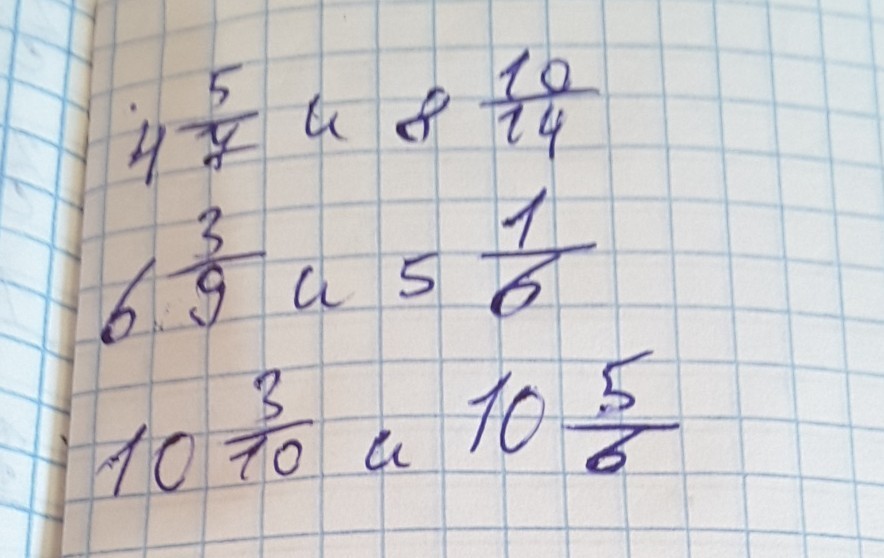 4 5/7 и 8 10/14
6 3/9 и 5 1/6
10 3/10 и 10 5/6